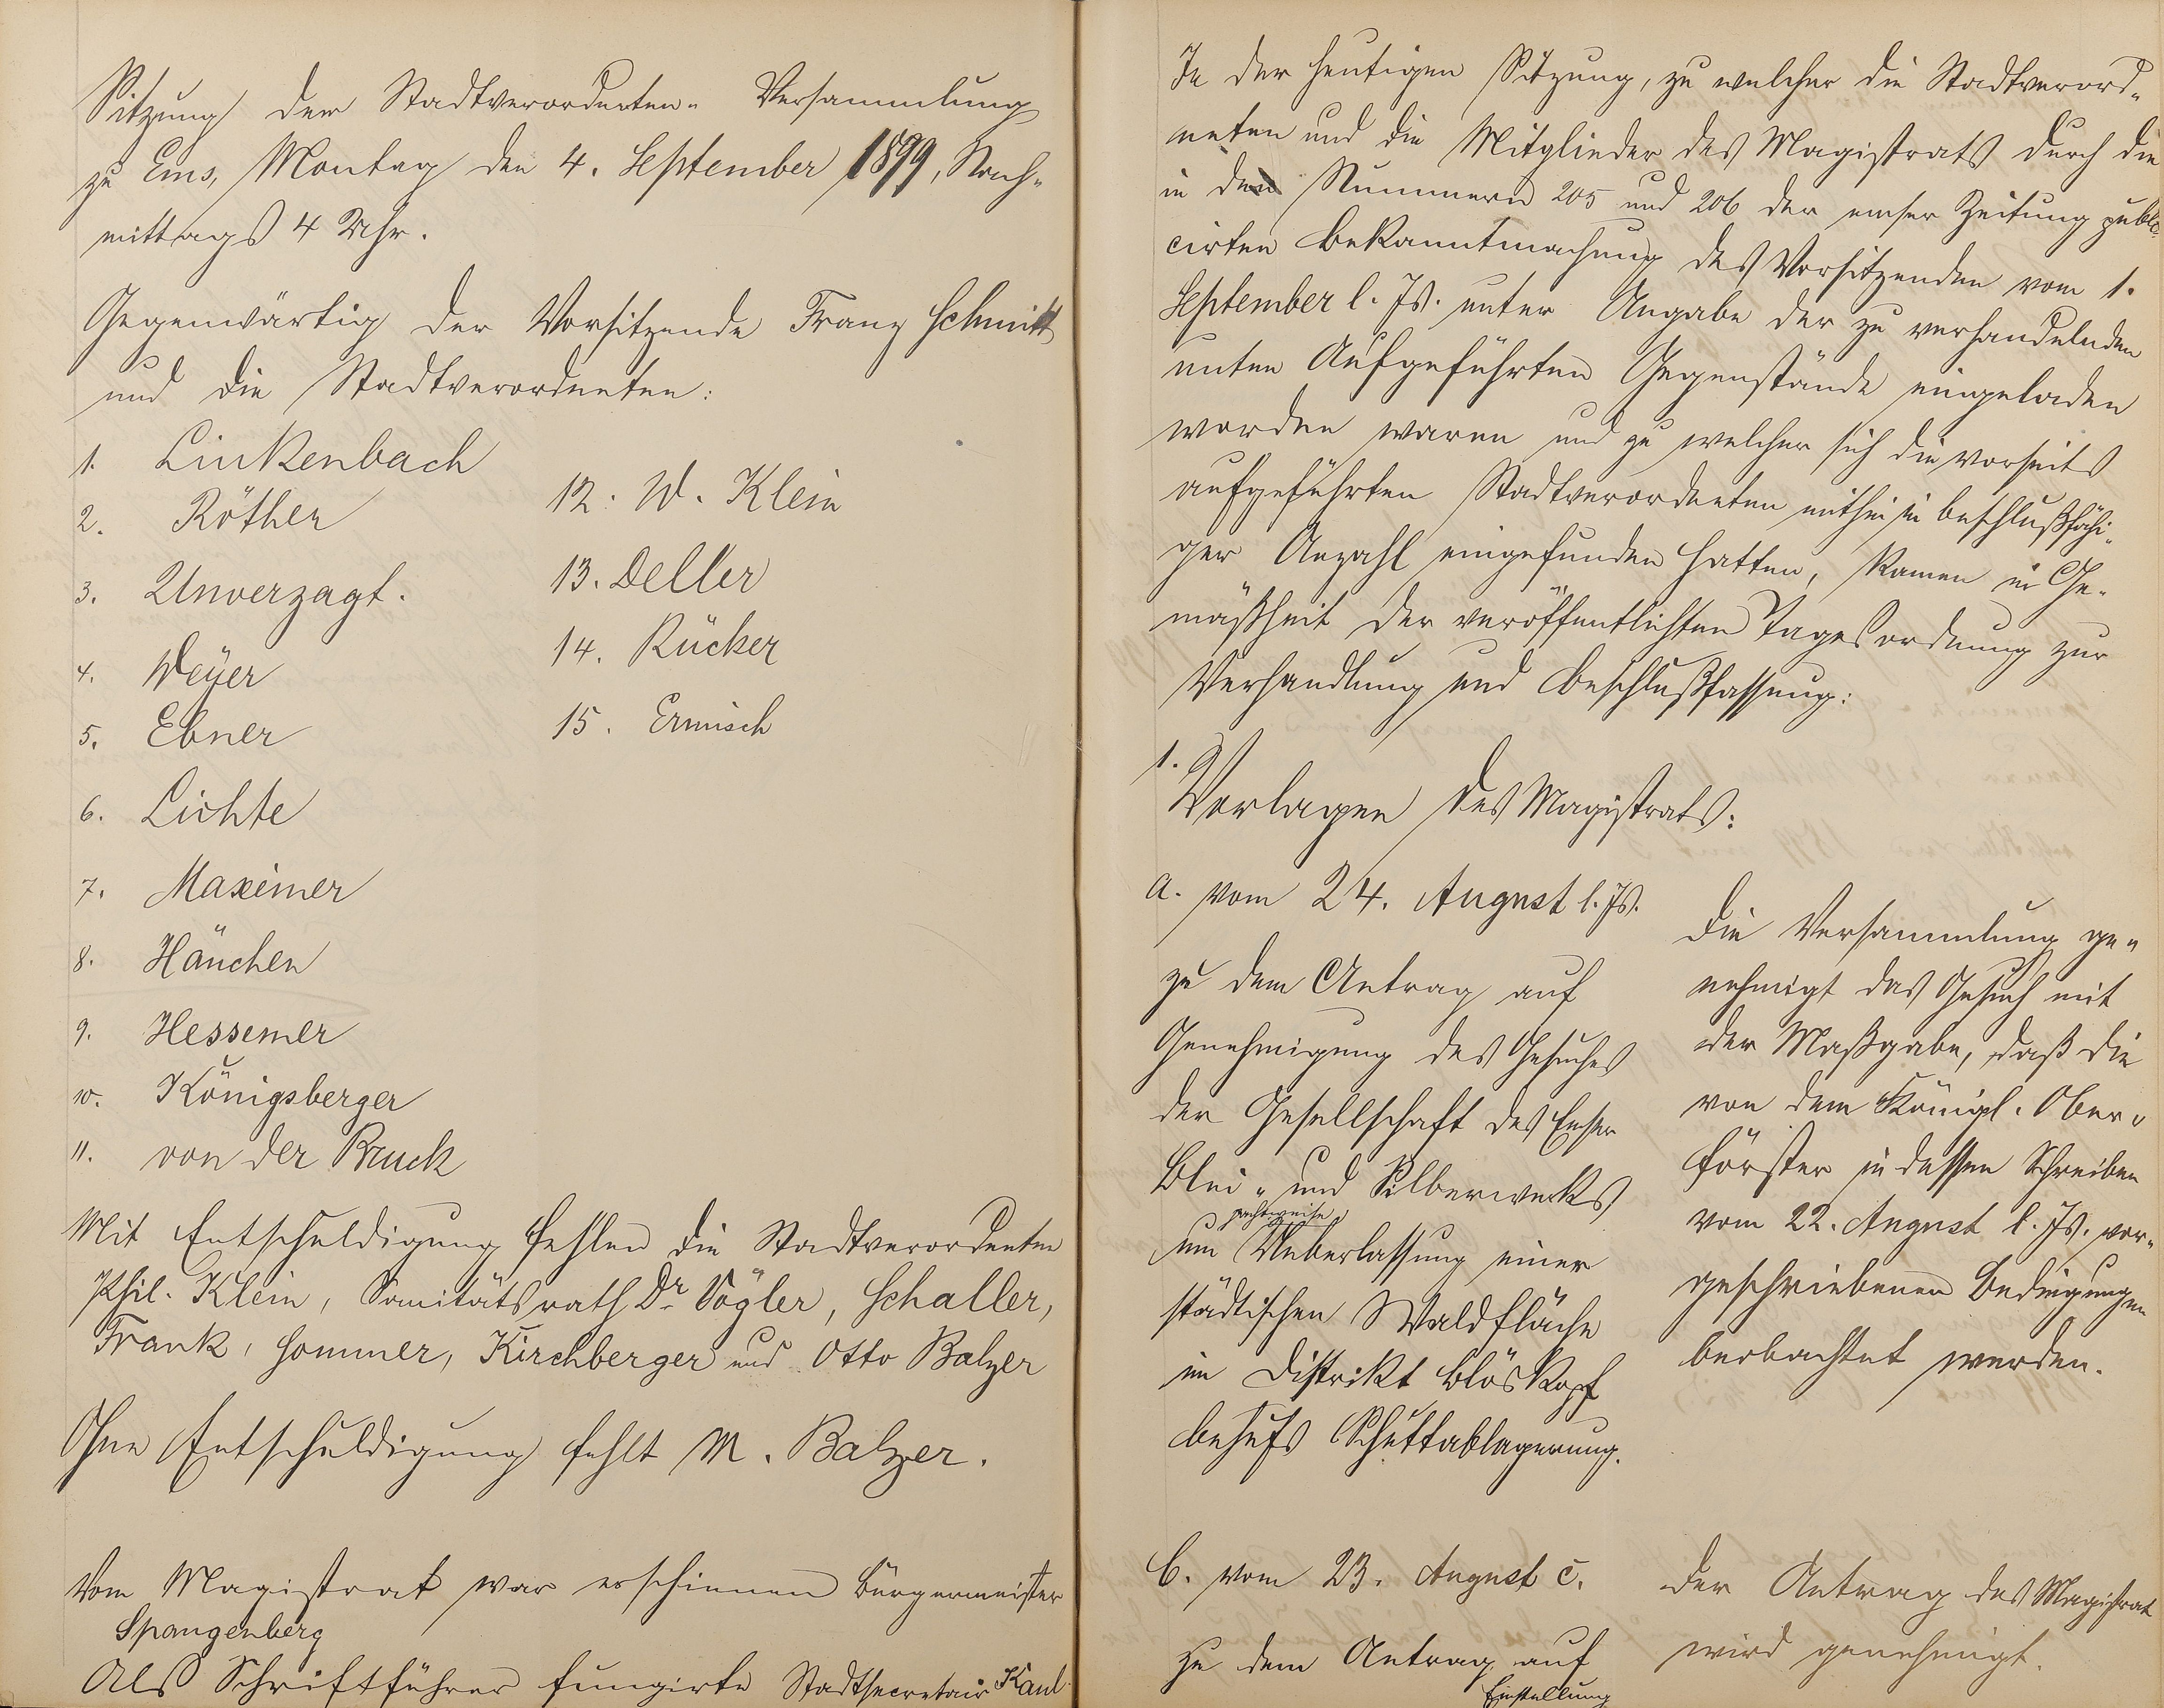 Sitzung der Stadtverordneten- Versammlung
zu Ems, Montag den 4. September 1899, Nach-
mittags 4 Uhr.
Gegenwärtig der Vorsitzende Franz Schmitt
und die Stadtverordneten:
1. Linkenbach
2. Röther
3. Unverzagt.
4. Weyer
5. Ebner
6. Lichte
7. Maximer
8. Hänchen
9. Hessemer
10. Königsberger
11. von der Bruck
12. W. Klein
13. Deller
14. Rücker
15. Ermisch
Mit Entschuldigung fehlen die Stadtverordneten
Phil. Klein, Sanitätsrath Dr. Vögler, Schaller,
Frank, Sommer, Kirchberger und Otto Balzer
Ohne Entschuldigung fehlt M. Balzer.
Vom Magistrat war erschienen Bürgermeister
Spangenberg
Als Schriftführer fungirte Stadtsecretair Kaul
In der heutigen Sitzung, zu welcher die Stadtverord-
neten und die Mitglieder des Magistrats durch die
in den Nummern 205 und 206 der emser Zeitung publi-
cirten Bekanntmachung des Vorsitzenden vom 1.
September l. Js. unter Angabe der zu verhandelnden
unten Aufgeführten Gegenstände eingeladen
worden waren und zu welcher sich die vorseits
aufgeführten Stadtverordneten mithin in beschlußfähi-
ger Anzahl eingefunden hatten, kamen in Ge-
mäßheit der veröffentlichten Tagesordnung zur
Verhandlung und Beschlußfassung:
1.
Vorlagen des Magistrats:
a. vom 24. August l. Js.
zu dem Antrag auf
Genehmigung des Gesuches
der Gesellschaft des Emser
Blei- und Silberwerks
pachtweise
um Ueberlassung einer
städtischen Waldfläche
im Distrikt Blöskopf
behufs Schuttablagerung.
Die Versammlung ge-
nehmigt das Gesuch mit
der Maßgabe, daß die
von dem Königl. Ober-
förster in dessen Schreiben
vom 22. August l. Js. vor-
geschriebenen Bedingungen
beobachtet werden.
b. vom 23. August c.
zu dem Antrag auf
Einstellung
Der Antrag des Magistrat
wird genehmigt.